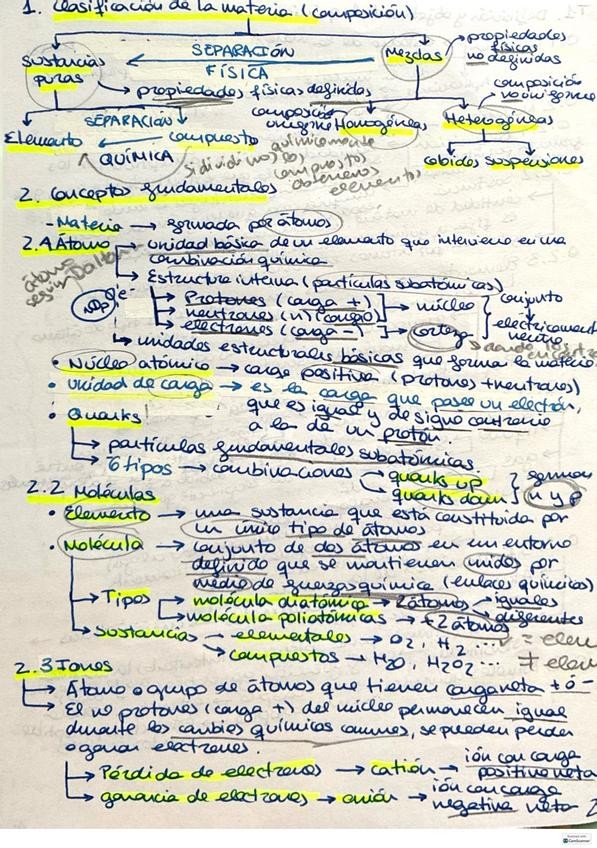 1. Clasificación de la materia (composición)
SEPARACIÓN
FÍSICA
Sustancias puras
Mezclas → propiedades físicas no definidas
→ propiedades físicas definidas
composición no uniforme
composición uniforme
Homogéneas
Heterogéneas
SEPARACIÓN
QUÍMICA
Elemento
compuesto
coloides suspensiones
Si dividimos los compuestos químicamente obtenemos elementos
2. Conceptos fundamentales
- Materia → formada por átomos
2.1 Átomo → unidad básica de un elemento que interviene en una combinación química
átomo según Dalton
→ Estructura interna (partículas subatómicas)
→ Protones (carga +)
→ neutrones (n) (carga 0)
→ núcleo
→ electrones (carga -) → corteza
conjunto eléctricamente neutro
→ unidades estructurales básicas que forma la materia.
• Núcleo atómico → carga positiva (protones + neutrones)
• Unidad de carga → es la carga que posee un electrón,
que es igual y de signo contrario
a la de un protón.
• Quarks!
→ partículas fundamentales subatómicas.
→ 6 tipos → combinaciones → quarks up
→ quarks down
forman n y p
2.2 Moléculas
• Elemento → una sustancia que está constituida por
un único tipo de átomos
• Molécula → conjunto de dos átomos en un entorno
definido que se mantienen unidos por
medio de fuerzas química (enlaces químicos)
→ Tipos → molécula diatómica → 2 átomos → iguales
→ diferentes
→ molécula poliatómicas → +2 átomos
→ Sustancias → elementales → O2, H2 ... = elem
→ compuestos → H2O, H2O2 ... ≠ elem
2.3 Iones
→ Átomo o grupo de átomos que tienen carga neta + ó -
→ El nº protones (carga +) del núcleo permanecen igual
durante los cambios químicos comunes, se pueden perder
o ganar electrones.
→ Pérdida de electrones → catión → ión con carga positiva neta
→ ganancia de electrones → anión → ión con carga negativa neta
Scanned with
CamScanner